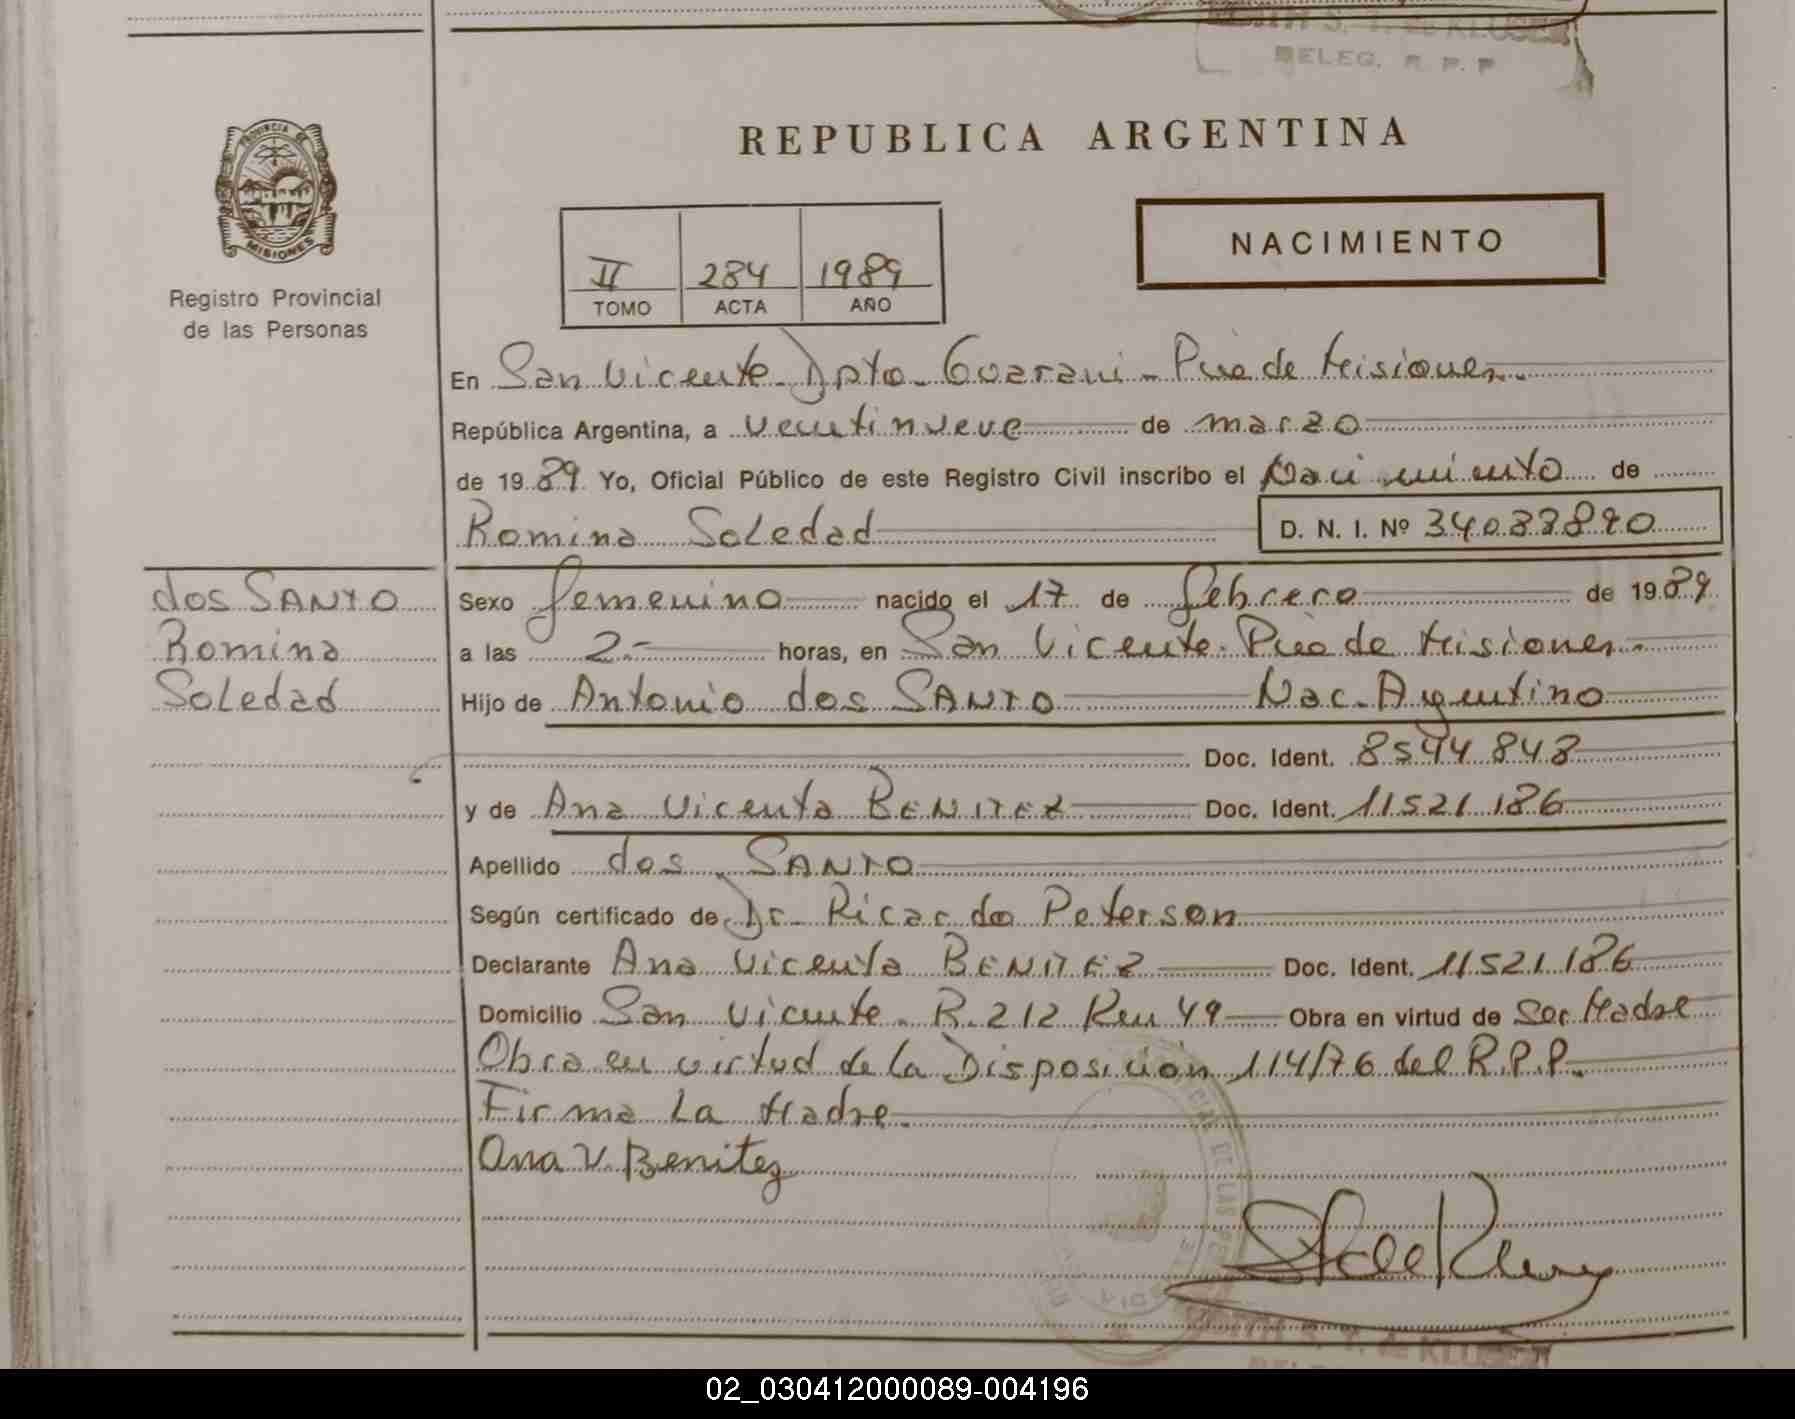 DELEG. R. P. P.
PROVINCIA DE
MISIONES
Registro Provincial
de las Personas
REPUBLICA ARGENTINA
NACIMIENTO
II 284 1989
TOMO ACTA AÑO
En San Vicente Dpto. Guarani - Pcia de Misiones.
República Argentina, a veintinueve de marzo
de 1989 Yo, Oficial Público de este Registro Civil inscribo el Nacimiento de
Romina Soledad D. N. I. Nº 34038890
dos SANTO
Romina
Soledad
Sexo femenino nacido el 17 de febrero de 1989
a las 2.- horas, en San Vicente. Pcia de Misiones.
Hijo de Antonio dos SANTO Nac. Argentino
Doc. Ident. 8544.848
y de Ana Vicenta BENITEZ Doc. Ident. 11521.186
Apellido dos SANTO
Según certificado de Dr. Ricardo Peterson
Declarante Ana Vicenta BENITEZ Doc. Ident. 11521.186
Domicilio San Vicente. R. 212 Km 49 Obra en virtud de Ser Madre
Obra en virtud de la Disposición 114/76 del R.P.P.
Firma La Madre.
Ana V. Benitez
02_030412000089-004196